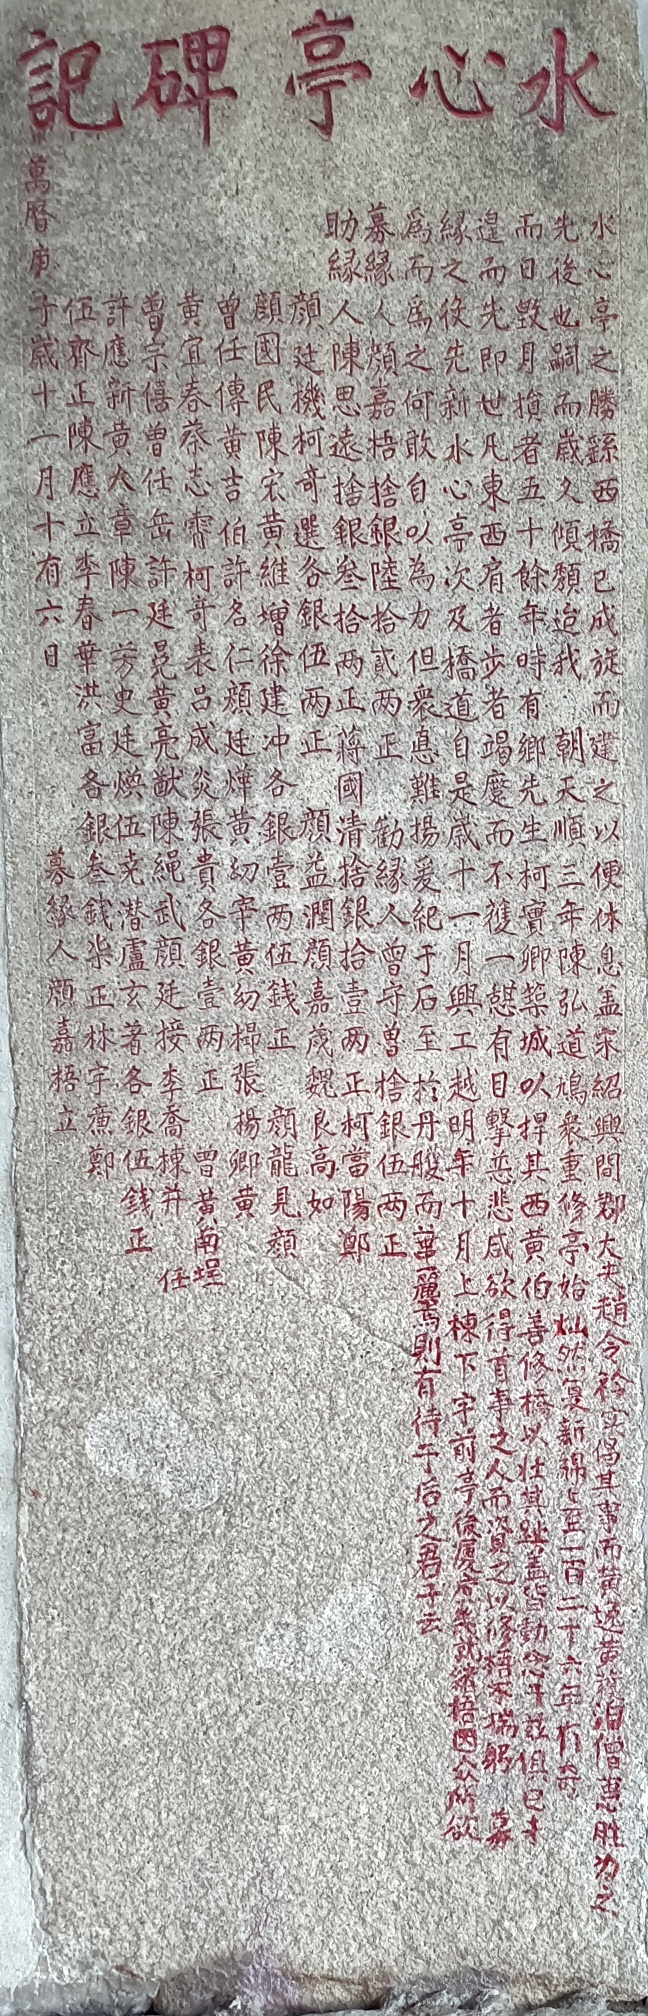 水心亭碑記
水心亭之勝繇西橋已成旋而建之以便休息盖宋紹興間郡大夫趙令衿實倡其事而黄逸黄護洎僧惠胜为之
先後也嗣而歲久傾頽迨我 朝天順三年陳弘道鳩衆重修亭始灿然复新綿々至一百二十六年
而日毁月損者五十餘年時有鄉先生柯實卿築城以捍其西黄伯善修橋以壮其盖皆動念于兹俱已
遑而先即世凡東西肩者步者竭蹙而不獲一憇有目擊慈悲咸欲得首事之人而資之以修梧不揣躬 募
緣之役先新水心亭次及橋道自是歲十一月興工越明年十月上棟下宇前亭後厦庶幾就緒梧因众所欲
爲而爲之何敢自以為力但衆惪難揚爰紀于石至扵丹艧而華麗焉則有待于后之君子云
募緣人顔嘉梧捨銀陸拾貳两正 勸緣人曾守曾捨銀伍两正
助緣人陳思遠捨銀叁拾两正蔣國清捨銀拾壹两正柯當陽鄭
顔廷機柯奇選各銀伍两正 顔益潤顔嘉茂魏良高如
顔國民陳宏黄維增徐建冲各銀壹两伍錢正 顔龍見顔
曾任傳黄吉伯許名仁顔廷燁黄幼宰黄幼楊張揚卿黄
黄宜春蔡志霈柯奇表吕成炎張貴各銀壹两正 曾黄南埕
曾宗僖曾任岳許廷晃黄亮猷陳繩武顔廷接李喬棟并 任
許應新黄大章陳一芳史廷燠伍克潜盧玄著各銀伍錢正
伍齊正陳應立李春華洪富各銀叁錢柒正林宇廣鄭
萬曆庚子歲十一月十有六日 募緣人顔嘉梧立